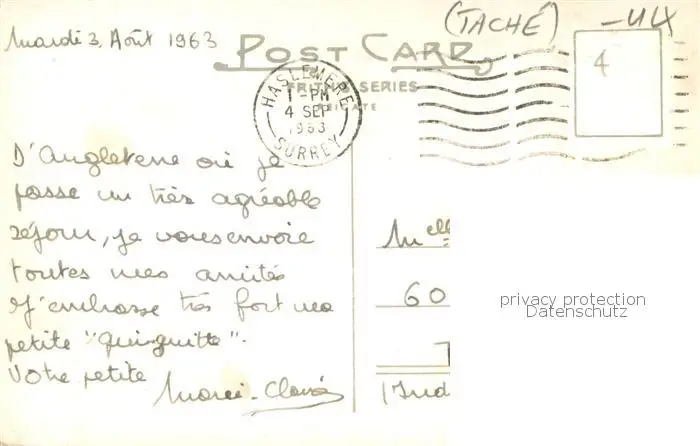 Mardi 3 Août 1963
(TACHÉ)
POST CARD
FRITH'S SERIES
HASLEMERE
1 - PM
4 SEP
1963
SURREY
4
D'Angleterre où je
passe un très agréable
séjour, je vous envoie
toutes mes amitiés
et j'embrasse très fort ma
petite "quinquitte".
Votre petite
Marie-Claire
Melle
60
privacy protection
Datenschutz